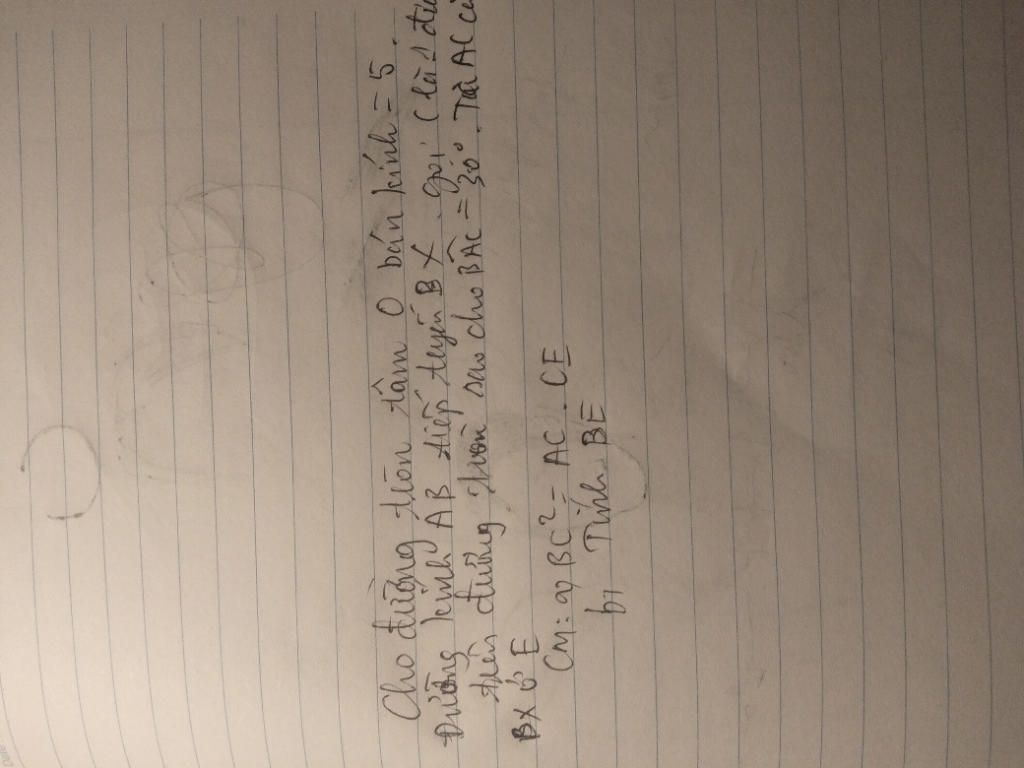 Cho đường tròn tâm O bán kính = 5.
Đường kính AB tiếp tuyến BX gọi C là 1
trên đường tròn sao cho BÂC = 30°. Tia AC
BX ở E
CM: a) BC² = AC . CE
b) Tính BE